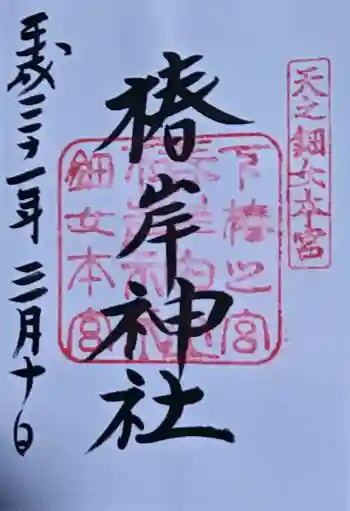 天之鈿女本宮
椿岸神社
下椿之宮
鈿女本宮
平成三十一年三月十日